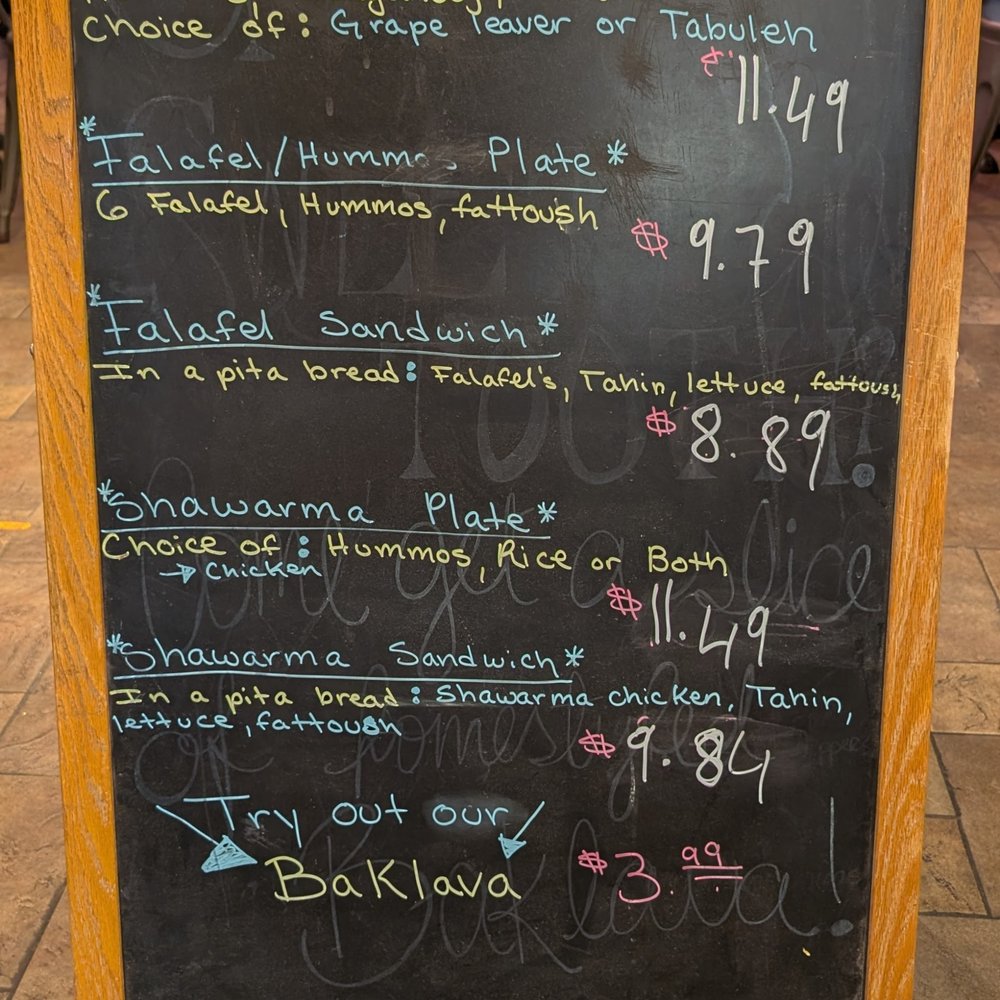 Choice of: Grape leaver or Tabuleh
$11.49
*Falafel/Hummos Plate*
6 Falafel, Hummos, fattoush
$9.79
*Falafel Sandwich*
In a pita bread: Falafel's, Tahin, lettuce, fattoush
$8.89
*Shawarma Plate*
Choice of: Hummos, Rice or Both
→ Chicken
$11.49
*Shawarma Sandwich*
In a pita bread: Shawarma chicken, Tahin,
lettuce, fattoush
$9.84
Try out our
Baklava $3.99